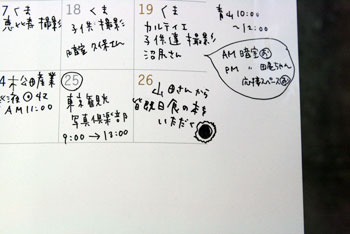 18 くま
子供撮影
暗室 久保さん
19 くま
カルティエ
子供達 撮影
沼尻さん
青山 10:00
～12:00
AM 暗室
PM 〃
7 くま
恵比寿撮影
木公田産業
AM 11:00
25
東京観光
写真倶楽部
9:00 → 18:00
26
山田さんから
皆既日食の本を
いただく